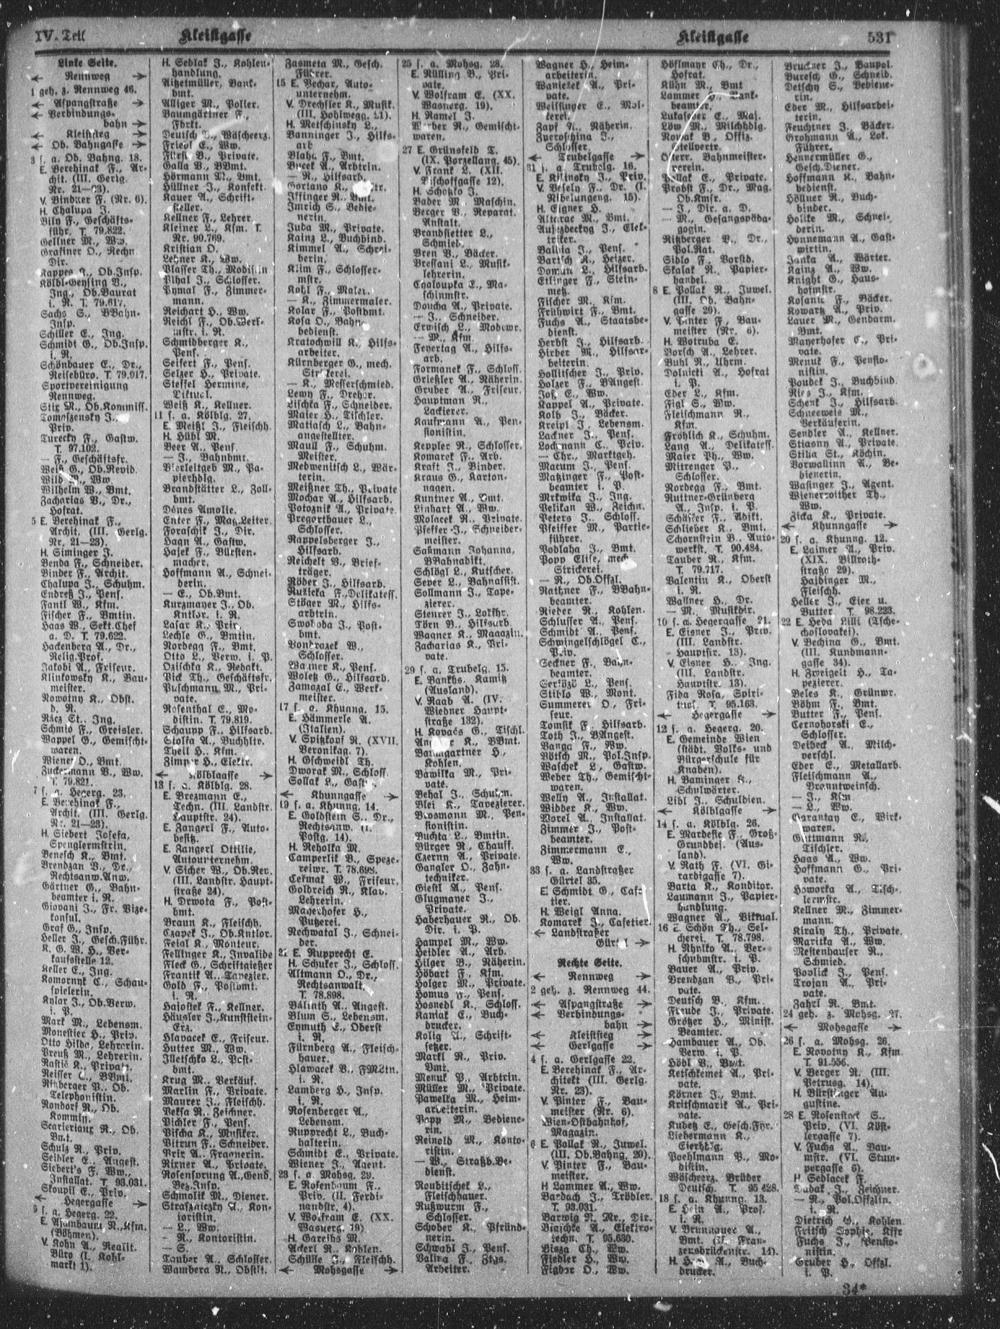 IV. Teil
Kleistgasse
Kleistgasse
531
Linke Seite.
← Rennweg →
1 geh. z. Rennweg 46.
← Aspangstraße →
← Verbindungs-
bahn →
← Kleiststeg →
← Ob. Bahngasse →
3 s. a. Ob. Bahng. 18.
E. Berehinak F., Ar-
chit. (III. Gerlg.
Nr. 21—23).
V. Bindner F. (Nr. 6).
H. Chalupa J.
führ. T. 79.822.
Gellner M., Ww.
Grafiner O., Rechn.
Dir.
Kappes A., Ob.Insp.
Ing., Ob.Baurat
i. R. T. 79.617.
Sachs S., BBahn-
Insp.
Schiller E., Ing.
Schmidt G., Ob.Insp.
i. R.
Schönbauer E., Dr.,
Reisebüro. T. 79.017.
Sportvereinigung
Rennweg.
Stix M., Ob.Kommiss.
Priv.
Turecky F., Gastw.
T. 97.102.
— F., Geschäftsfr.
Weiß G., Ob.Revid.
Wilhelm W., Bmt.
Zacharias V., Dr.,
Hofrat.
5 E. Berehinak F.,
Archit. (III. Gerlg.
Nr. 21—23).
H. Siminger J.
Benda F., Schneider.
Binder F., Archit.
Chalupa J., Schuhm.
Endreß J., Pens.
Fantl W., Kfm.
Fischer F., Bmtin.
Haas W., Sekt.Chef
a. D. T. 79.622.
Hackenberg A., Dr.,
Relig.Prof.
Jakobi A., Friseur.
Klinkowsky K., Bau-
meister.
Nowotny K., Obst.
d. R.
Rácz St., Ing.
Schmid F., Greisler.
Wappel G., Gemischt-
waren.
Wiener O., Bmt.
Zuckermann B., Ww.
T. 79.821.
7 s. a. Hegerg. 23.
E. Berehinak F.,
Archit. (III. Gerlg.
Nr. 21—23).
H. Siebert Josefa,
Spenglermstrin.
Benesch K., Bmt.
Brendzan B., Dr.,
Rechtsanw.Anw.
Gärtner G., Bahn-
beamter i. R.
Giovani J., Fr. Vize-
konsul.
Graf G., Insp.
Heller J., Gesch.Führ.
K. G. W. H., Ver-
kaufsstelle 12.
Keller E., Ing.
Komornyk C., Schau-
spielerin.
Kylar J., Ob.Verw.
i. P.
Mark M., Lebensm.
Monestier H., Priv.
Otto Hilde, Lehrerin.
Preuß M., Lehrerin.
Rastić K., Private.
Reisser C., BBmt.
Ritzberger P., Ob.
Telephonistin.
Rondorf R., Ob.
Kommiss.
Bmt.
Schulz R., Priv.
Seidler E., Angest.
Siebert's F. Ww.,
Installat. T. 93.031.
Skoupil E., Priv.
← Hegergasse →
9 s. a. Hegerg. 22.
(Böhmen).
V. Kohn A., Realit.
Büro (I. Kohl-
markt 1).
H. Sedlak J., Kohlen-
handlung.
Aicheimüller, Bank-
bmt.
Alliger M., Poller.
Baumgärtner F.,
Fabrk.
Deutsch D., Wäscheerz.
Friesl E., Ww.
Fürst B., Private.
Galla B., BBmt.
Hörmann M., Bmt.
Hüllner J., Konfekt.
Kauer A., Schrift-
steller.
Kellner F., Lehrer.
Kleiner L., Kfm. T.
Nr. 90.769.
Kristian O.
Lehner K., Ww.
Plasser Th., Modistin
Plhal J., Schlosser.
Pymal F., Zimmer-
mann.
Reichart H., Ww.
Reichl F., Ob.Werk-
mstr. i. R.
Schmidberger K.,
Pens.
Seifert F., Pens.
Selzer H., Private.
Steffel Hermine,
Diktuel.
Weiß K., Kellner.
11 s. a. Kölblg. 27.
E. Meißl J., Fleischh.
H. Hübl M.
Beer A., Pens.
— J., Bahnbmt.
Bierleitgeb M., Pa-
pierhdlg.
Brandstätter L., Zoll-
bmt.
Dönes Amolie.
Enter F., Mag.Leiter.
Foraschik J., Dir.
Hagn A., Gastw.
Hajek F., Bürsten-
macher.
Hoffmann A., Schnei-
derin.
— E., Ob.Bmt.
Kurzmayer J., Ob.
Kntlor. i. R.
Lasar K., Priv.
Lechle G., Bmtin.
Norbega F., Bmt.
Otto L., Verw. i. P.
Ozlschka K., Redakt.
Pick Th., Geschäftsfr.
Puschmann M., Pri-
vate.
Rosenthal E., Mo-
distin. T. 79.819.
Schaupp F., Hilfsarb.
Stolfa A., Buchhltr.
Theil H., Kfm.
Zimper H., Elektr.
← Kölblgasse →
13 s. a. Kölblg. 28.
E. Brezmann E.,
Techn. (III. Landstr.
Hauptstr. 24).
E. Zangerl F., Auto-
besitz.
E. Zangerl Ottilie,
Autounternehm.
V. Sicher W., Ob.Rev.
(III. Landstr. Haupt-
straße 24).
H. Drwota F., Post-
bmt.
Braun K., Fleischh.
Czapek J., Ob.Kntlor.
Feial K., Monteur.
Fellinger K., Invalide
Fleck G., Schriftgießer
Frantik A., Tapezier.
Gold F., Postbmt.
i. R.
Hajoftek F., Kellner.
Häusler J., Kunststein-
Erz.
Hlavacek E., Friseur.
Hutter M., Ww.
Jlletschko L., Post-
bmt.
Krug M., Verkäuf.
Marlin F., Private.
Maurer J., Fleischh.
Peksa R., Zeichner.
Pichler F., Pens.
Pischa K., Musiker.
Pitrun F., Schneider.
Prix A., Fragnerin.
Rirner A., Private.
Rosensprung A., Gend.
Bez.Insp.
Schmolik M., Diener.
toristin.
— L., Ww.
— R., Kontoristin.
— S.
Tauber A., Schlosser.
Wambera R., Obstlt.
Zasmeta M., Gesch.
Führer.
15 E. Bechar, Auto-
unternehm.
V. Drechsler K., Musik.
(III. Hohlweg. 11).
H. Mersschinsky L.
Banninger J., Hilfs-
arb.
Blaha F., Bmt.
Bocek A., Arbtrin.
— R., Hilfsarb.
Iffinger R., Bmt.
Imrich S., Bedie-
nerin.
Juda M., Private.
Kainz L., Buchbind.
Kimmel A., Schnei-
derin.
Klim F., Schlosser-
mstr.
Kohl F., Maler.
— K., Zimmermaler.
Kolar F., Postbmt.
Kosa O., Bahn-
bedienst.
Kratochwill K., Hilfs-
arbeiter.
Kürnberger G., mech.
Strickerei.
— K., Messerschmied.
Lewy F., Dreher.
Litschka F., Schneider.
Maier H., Tischler.
Matiasch L., Bahn-
angestellter.
Maull F., Schuhm.
Meister.
Medwenitsch L., Wär-
terin.
Meißner Th., Private
Mohar A., Hilfsarb.
Potoznik A., Private.
Pregartbauer L.,
Schlosser.
Rappelsberger J.,
Hilfsarb.
Reichelt B., Brief-
träger.
Röder J., Hilfsarb.
Ružicka F., Delikatess.
Stöger M., Hilfs-
arbtrin.
Swoboda J., Post-
bmt.
Schlosser.
Wagner K., Pens.
Woletz G., Hilfsarb.
Zamazal E., Werk-
meister.
17 s. a. Khunng. 15.
E. Hämmerle A.
(Italien).
V. Spitzkopf R. (XVII.
Veronikag. 7).
H. Gschweidl Th.
Dworak M., Schloss.
Sollak E., Gastw.
← Khunngasse →
19 s. a. Khunng. 14.
E. Goldstein S., Dr.,
Rechtsanw. (I.
Postg. 14).
H. Rehotka M.
Camperlik B., Speze-
reiwr. T. 78.698.
Cekmak W., Friseur.
Goldreich R., Klav.
Lehrerin.
Maierhofer H.,
Putzerei.
Rechwatal J., Schnei-
der.
21 E. Rupprecht E.
H. Schuker J., Schloss.
Altmann O., Dr.,
Rechtsanwalt.
T. 78.898.
Bálinth A., Angest.
Blum S., Lebensm.
Enmuth E., Oberst
i. R.
Fürnberg A., Fleisch-
hauer.
Hlawacek B., FMLtn.
i. R.
Lamberg H., Insp.
i. R.
Rosenberger A.,
Lebensm.
Rupprecht L., Buch-
halterin.
Schmidt E., Private.
Wiener J., Agent.
23 s. a. Mohsg. 29.
E. Rosenbaum F.,
Priv. (II. Ferdi-
nandstr. 4).
V. Wolfram E. (XX.
Wasnerg. 19)
H. Gareihs M.
Ackerl R., Kohlen.
Schüsse J., Fleischh.
← Mohsgasse →
25 s. a. Mohsg. 28.
E. Nülling B., Pri-
vate.
V. Wolfram E. (XX.
Wasnerg. 19).
H. Ramel J.
Weber R., Gemischt-
waren.
27 E. Grünfeld T.
(IX. Porzellang. 45).
V. Frank L. (XII.
Bischoffgasse 12).
H. Schotzko J.
Bader M., Maschin.
Berger V., Reparat.
Anstalt.
Brandstetter L.,
Schmied.
Bren B., Bäcker.
Bressani L., Musik-
lehrerin.
Czaloupka L., Ma-
schinmstr.
Danzha A., Private.
— J., Schneider.
Erwisch L., Modewr.
— M., Kfm.
Feyertag A., Hilfs-
arb.
Formanek F., Schloss.
Grießler A., Näherin.
Gruber A., Friseur.
Hauptman R.,
Lackierer.
Kaufmann A., Pen-
sionistin.
Keppler R., Schlosser.
Komarek F., Arb.
Kraft J., Binder.
Kraus G., Karton-
nagen.
Kuntner A., Bmt.
Linhart A., Ww.
Molacek R., Private.
Pfeffer J., Schneider-
meister.
Saßmann Johanna,
BBahnabikt.
Schlögl L., Kutscher.
Seper L., Bahnassist.
Sollmann J., Tape-
zierer.
Stenzer J., Lokfhr.
Törn B., Hilfsarb.
Wagner K., Magazin.
Zacharias K., Pri-
vate.
29 s. a. Trubelg. 15.
E. Bankhs. Kamitz
(Ausland).
V. Raab A. (IV.
Wiedner Haupt-
straße 132).
H. Kovacs G., Tischl.
Baumgartner H.,
Kohlen.
Bawilka M., Pri-
vate.
Behal J., Schuhm.
Blei K., Tapezierer.
Brosmann M., Pen-
sionistin.
Buchta L., Bmtin.
Bürger R., Chauff.
Czerny A., Private.
Gangler O., Zahn-
techniker.
Giestl A., Pens.
Glugmayer J.,
Private.
Haberhauer R., Ob.
Dir. i. P.
Hampel M., Ww.
Heibler A., Arb.
Hilger B., Näherin.
Höbart F., Kfm.
Holger M., Private.
Homus B., Pens.
Hosnedl K., Schloss.
Kaniak E., Buch-
drucker.
Kolig A., Schrift-
setzer.
Markl R., Priv.
Bmt.
Menuk P., Arbtrin.
Müller M., Private.
Pawelka M., Heim-
arbeiterin.
Popp M., Bediene-
rin.
Reinold M., Konto-
ristin.
— W., Straßb.Be-
dienst.
Roubitschek L.,
Fleischhauer.
Rußwurm F.,
Schlosser.
Schober K., Pfründ-
nerin.
Schwahl J., Pens.
Wagner H., Heim-
arbeiterin.
Wanietek A., Pri-
vate.
Weißinger E., Mol-
kerei.
Zapf A., Näherin.
Schlosser.
← Trubelgasse →
31 s. a. Trubelg. 16.
E. Kilinsky J., Priv.
V. Vesely F., Dr. (I.
Nibelungeng. 15).
H. Eigner H.
Aiterac M., Bmt.
Aufhdecksy J., Elek-
triker.
Balliza J., Pens.
Bartsch K., Heizer.
Doman L., Hilfsarb.
Eitinger F., Stein-
metz.
Fischer M., Kfm.
Frühwirt F., Bmt.
Fuchs A., Staatsbe-
dienst.
Herbst J., Hilfsarb.
Hirber M., Hilfsar-
beiterin.
Hollitscher J., Priv.
Holzer F., BAngest.
Jos E., Ww.
Kappel A., Private.
Kolb J., Bäcker.
Kreipl J., Lebensm.
Lackner J., Pens.
Lochmann C., Priv.
— Chr., Marktgeh.
Macum J., Pens.
Matzinger F., Post-
beamter i. P.
Mrkwika J., Ing.
Pelikan W., Zeichn.
Peters J., Schloss.
Pfeiffer M., Partie-
führer.
Podlaha J., Bmt.
Popp Elise, mech.
Strickerei.
— R., Ob.Offzl.
Rathner F., BBahn-
beamter.
Rieker R., Kohlen.
Schlusser A., Pens.
Schmidt A., Pens.
Schwingelschlögl C.,
Priv.
Seckner F., Bahn-
beamter.
Serközi L., Pens.
Stiblo W., Mont.
Summerei O., Fri-
seur.
Tomsil F., Hilfsarb.
Toth J., BAngest.
Vanga F., Ww.
Völsch M., Pol.Insp.
Waschek L., Gastw.
Weber Th., Gemischt-
waren.
Welly A., Installat.
Widder K., Ww.
Worel A., Installat.
Zimmer J., Post-
beamter.
Zimmermann E.,
Ww.
33 s. a. Landstraßer
Gürtel 35.
E. Schmidt G., Cafe-
tier.
H. Weigl Anna.
Komarek J., Cafetier.
← Landstraßer
Gürtel →
Rechte Seite.
← Rennweg →
2 geh. z. Rennweg 44.
← Aspangstraße →
← Verbindungs-
bahn →
← Kleiststeg →
← Gerlgasse →
4 s. a. Gerlgasse 22.
E. Berehinak F., Ar-
chitekt (III. Gerlg.
Nr. 23).
V. Pinter F., Bau-
meister (Nr. 6).
Wien-Ostbahnhof,
Magazin.
6 E. Pollak R., Juwel.
(III. Ob. Bahng. 20).
V. Pinter F., Bau-
meister.
H. Lammer A., Ww.
Bardach J., Trödler.
T. 93.031.
Barwig R., Mr., Dir.
Blaschke A., Elektro-
techn. T. 95.630.
Bisza Ch., Ww.
Fiedler H., Ww.
Figdor O., Ww.
Höslmayr Ch., Dr.,
Hofrat.
Kühn M., Bmt.
Lammer J., Bank-
beamter.
Lukaseder E., Maj.
Löw M., Milchhdlg.
Nowak B., Offiz.
Stellvertr.
Österr. Bahnmeister-
verein.
Pollak E., Private.
Probst F., Dr., Mag.
Ob.Kmsr.
— J., Dir. a. D.
— M., Gesangspäda-
gogin.
Ritzberger V., Dr.,
Pol.Rat.
Sidlo F., Vorstd.
Skalak R., Papier-
handel.
8 E. Pollak R., Juwel.
(III. Ob. Bahn-
gasse 20).
V. Pinter F., Bau-
meister (Nr. 6).
H. Wotruba E.
Borsch A., Lehrer.
Buhl R., Uhrm.
Dolnicki A., Hofrat
i. P.
Eder L., Kfm.
Figl S., Ww.
Fleischmann R.,
Kfm.
Fröhlich K., Schuhm.
Lang A., Delikatess.
Maier Ph., Ww.
Mitrenger P.,
Schlosser.
Norbega F., Bmt.
Ruttner-Grünberg
A., Insp. i. P.
Schäfer F., Adjkt.
Schlieber K., Bmt.
Schornstein B., Auto-
werkst. T. 90.484.
Tauber R., Kfm.
T. 79.717.
Valentin K., Oberst
i. R.
Wallner H., Dr.
— M., Musikdir.
10 s. a. Hegergasse 21.
E. Eisner J., Priv.
(III. Landstr.
Hauptstr. 13).
V. Eisner H., Ing.
(III. Landstr.
Hauptstr. 13).
Fida Rosa, Spiri-
tuol. T. 95.163.
← Hegergasse →
12 s. a. Hegerg. 20.
E. Gemeinde Wien
(städt. Volks- und
Bürgerschule für
Knaben).
H. Baminger K.,
Schulwärter.
Libl J., Schuldien.
← Kölblgasse →
14 s. a. Kölblg. 26.
E. Marbesle F., Groß-
Grundbes. (Aus-
land).
V. Rath F. (VI. Gi-
rardigasse 7).
Barta K., Konditor.
Laumann J., Papier-
handlung.
Wagner A., Viktual.
16 E. Schön Th., Sel-
cherei. T. 78.798.
H. Rhniko A., Ber-
schubmstr. i. P.
Bauer A., Priv.
Brendzan B., Pri-
vate.
Deutsch B., Kfm.
Freude J., Private.
Größer H., Minist.
Beamter.
Hambauer A., Ob.
Verw. i. P.
Hödl B., Bmt.
Ketschkemet A., Pri-
vate.
Körner J., Bmt.
Kritschmarik A., Pri-
vate.
Kubetz E., Gesch.Fhr.
Liebermann K.,
Eierhdlg.
Poehlmann B., Mo-
distin.
Wöscherz. Brüder
Deutsch. T. 95.428.
18 s. a. Khunng. 13.
E. Hein A., Prof.
i. R.
Bmt. (II. Fran-
zensbrückenstr. 14).
Bruckner J., Baupol.
Buresch G., Schneid.
Detschy S., Bediene-
rin.
Eder M., Hilfsarbei-
terin.
Feuchtner J., Bäcker.
Grohmann A., Lok.
Führer.
Hennermüller G.,
Gesch.Diener.
Hoffmann K., Bahn-
bedienst.
Höllner R., Buch-
binder.
Holike M., Schnei-
derin.
Honnemann A., Gast-
wirtin.
Janka A., Wärter.
Kainz A., Ww.
Knight G., Haus-
hofmstr.
Kosanic F., Bäcker.
Kowartz A., Priv.
Lauer M., Gendarm.
Bmt.
Mayerhofer C., Pri-
vate.
Menuk F., Pensio-
nistin.
Poudek J., Buchbind.
Ries J., Kfm.
Schenk J., Hilfsarb.
Schneeweis M.,
Verkäuferin.
Sendler A., Kellner.
Stiasny A., Private.
Stilia St., Köchin.
Vorwallinn A., Be-
dienerin.
Wasinger J., Agent.
Wienerroither Th.,
Ww.
Zicka K., Private.
← Khunngasse →
20 s. a. Khunng. 12.
E. Laimer A., Priv.
(XIX. Billroth-
straße 29).
Haidinger M.,
Fleischh.
Heller J., Eier u.
Butter. T. 98.223.
22 E. Heda Lilli (Tsche-
choslovakei).
V. Bechina G., Bmt.
(III. Kundmann-
gasse 34).
H. Zweigelt H., Ta-
pezierer.
Beles K., Grünwr.
Böhm F., Bmt.
Butter F., Pens.
Cernohorski E.,
Schlosser.
Deibeck A., Milch-
verschl.
Eder E., Metallarb.
Fleischmann A.,
Branntweinsch.
— J., Kfm.
— J., Ww.
Garantay E., Wirk-
waren.
Guttmann R.,
Tischler.
Haas A., Ww.
Hoffmann G., Pri-
vate.
Haworka A., Tisch-
lermstr.
Kellner M., Zimmer-
mann.
Kiraly Th., Private.
Maritka A., Ww.
Mestenhauser R.,
Schmied.
Povlick J., Pens.
Trojan A., Pri-
vate.
Zahrl R., Bmt.
24 geh. z. Mohsg. 27.
← Mohsgasse →
26 s. a. Mohsg. 26.
E. Nowotny K., Kfm.
T. 91.556.
V. Berger R. (III.
Petrusg. 14).
H. Bürstinger Au-
gustine.
28 E. Rosenstock S.,
Priv. (VI. Köst-
lergasse 7).
V. Fuchs A., Bau-
mstr. (VI. Stum-
pergasse 6).
H. Sedlacek F.
— R., Pol.Offzlin.
i. R.
Dietrich G., Kohlen.
Fuchs J., Pensio-
nistin.
Gruber H., Offzl.
i. P.
34*